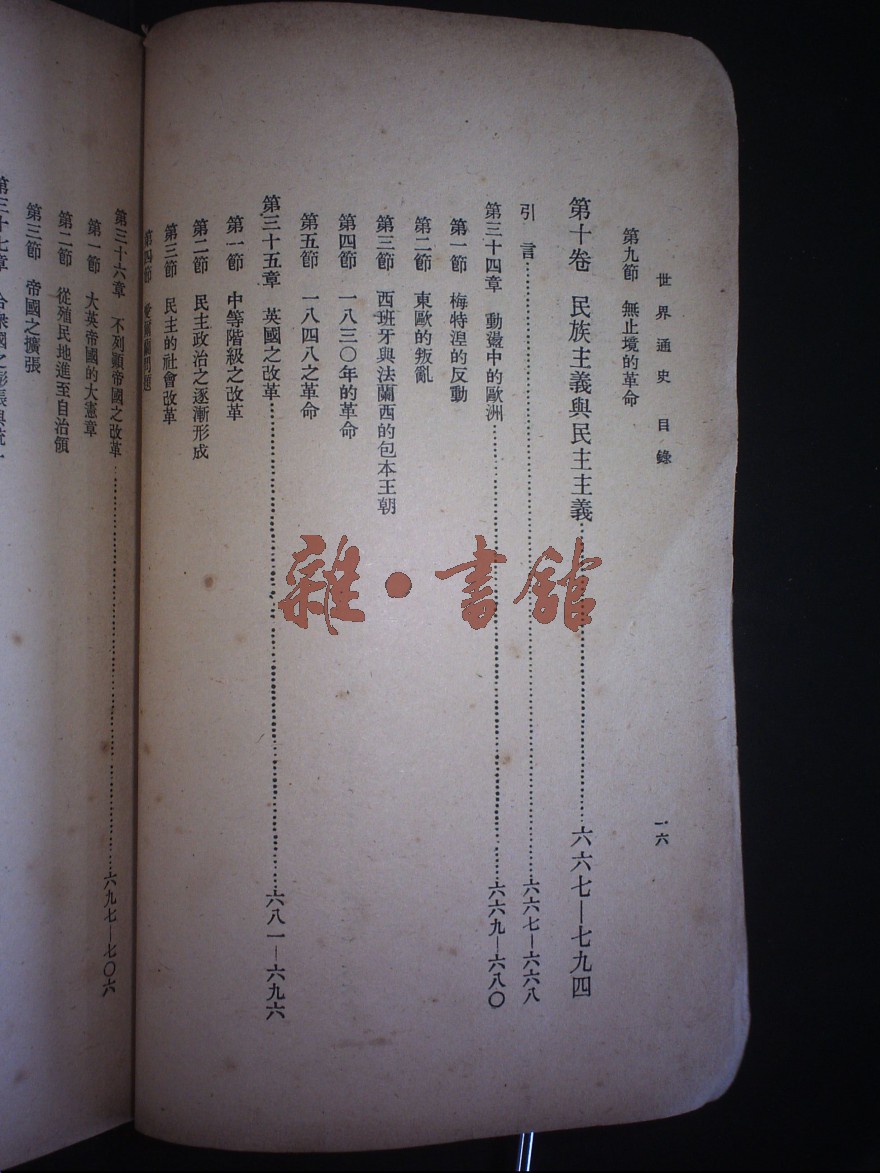 世界通史 目錄
一六
第九節 無止境的革命
第十卷 民族主義與民主主義……六六七—七九四
引言……六六七—六六八
第三十四章 動盪中的歐洲……六六九—六八〇
第一節 梅特湼的反動
第二節 東歐的叛亂
第三節 西班牙與法蘭西的包本王朝
第四節 一八三〇年的革命
第五節 一八四八之革命
第三十五章 英國之改革……六八一—六九六
第一節 中等階級之改革
第二節 民主政治之逐漸形成
第三節 民主的社會改革
第四節 愛爾蘭問題
第三十六章 不列顛帝國之改革……六九七—七〇六
第一節 大英帝國的大憲章
第二節 從殖民地進至自治領
第三節 帝國之擴張
第三十七章 合衆國之膨脹與統一
雜·書館